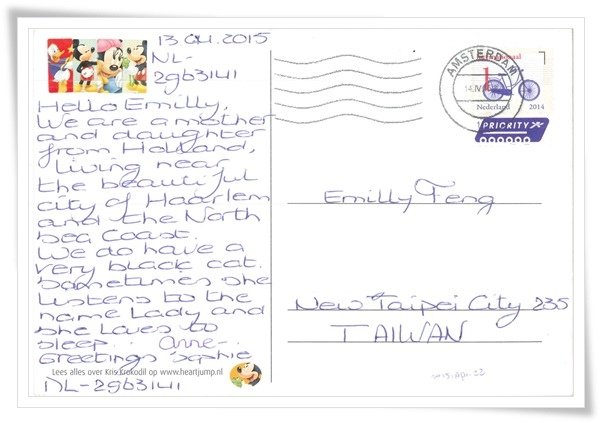 13.04.2015
NL-
2gb3141
Hello Emilly,
We are a mother
and daughter
from Holland,
living near
the beautiful
city of Haarlem
and the North
Sea Coast.
We do have a
very black cat.
Sometimes she
listens to the
name Lady and
she Loves to
sleep. Anne-
Greetings Sophie
NL-2gb3141
Lees alles over Kris Krokodil op www.heartjump.nl
AMSTERDAM
1
Nederland 2014
PRIORITY
Emilly Feng
New Taipei City 235
TAIWAN